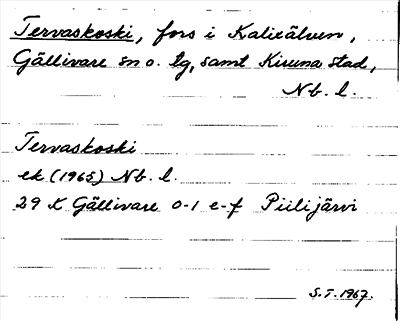 Tervaskoski, fors i Kalixälven,
Gällivare sn o. tg, samt Kiruna stad,
Nb. l.
Tervaskoski
ek (1965) Nb. l.
29 K Gällivare 0-1 e-f Piilijärvi
S.T. 1967.